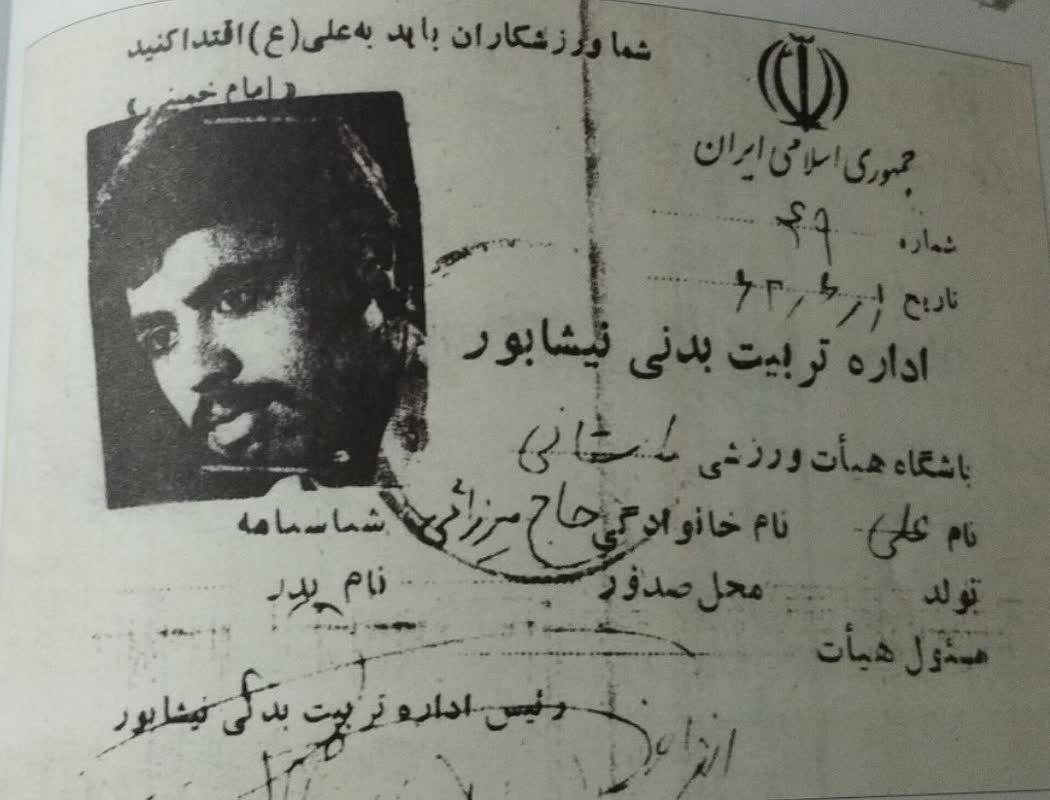 شما ورزشکاران باید به علی (ع) اقتدا کنید
«امام خمینی»
جمهوری اسلامی ایران
شماره ۴۹
تاریخ ۶۲/۶/۱
اداره تربیت بدنی نیشابور
باشگاه هیأت ورزشی باستانی
نام علی نام خانوادگی حاج میرزائی شناسنامه
تولد محل صدور نام پدر
مسئول هیأت
رئیس اداره تربیت بدنی نیشابور